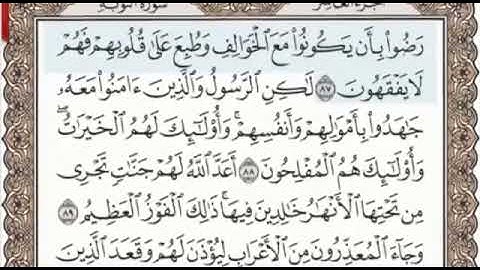 سورة التوبة
الجزء العاشر
رَضُوا۟ بِأَن يَكُونُوا۟ مَعَ ٱلْخَوَالِفِ وَطُبِعَ عَلَىٰ قُلُوبِهِمْ فَهُمْ
لَا يَفْقَهُونَ ٨٧ لَٰكِنِ ٱلرَّسُولُ وَٱلَّذِينَ ءَامَنُوا۟ مَعَهُۥ
جَٰهَدُوا۟ بِأَمْوَٰلِهِمْ وَأَنفُسِهِمْ ۚ وَأُو۟لَٰٓئِكَ لَهُمُ ٱلْخَيْرَٰتُ ۖ
وَأُو۟لَٰٓئِكَ هُمُ ٱلْمُفْلِحُونَ ٨٨ أَعَدَّ ٱللَّهُ لَهُمْ جَنَّٰتٍ تَجْرِى
مِن تَحْتِهَا ٱلْأَنْهَٰرُ خَٰلِدِينَ فِيهَا ۚ ذَٰلِكَ ٱلْفَوْزُ ٱلْعَظِيمُ ٨٩
وَجَآءَ ٱلْمُعَذِّرُونَ مِنَ ٱلْأَعْرَابِ لِيُؤْذَنَ لَهُمْ وَقَعَدَ ٱلَّذِينَ